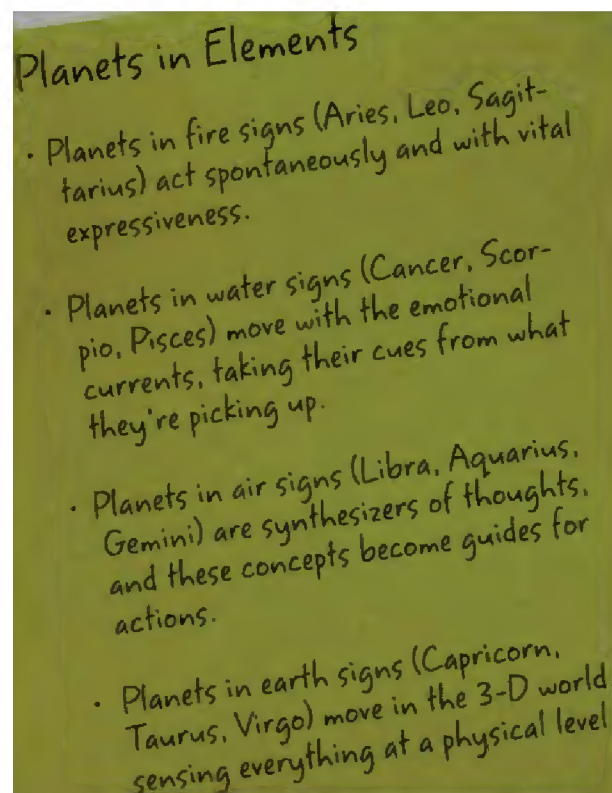 Planets in Elements
· Planets in fire signs (Aries, Leo, Sagit-
tarius) act spontaneously and with vital
expressiveness.
· Planets in water signs (Cancer, Scor-
pio, Pisces) move with the emotional
currents, taking their cues from what
they're picking up.
· Planets in air signs (Libra, Aquarius,
Gemini) are synthesizers of thoughts,
and these concepts become guides for
actions.
· Planets in earth signs (Capricorn,
Taurus, Virgo) move in the 3-D world
sensing everything at a physical level